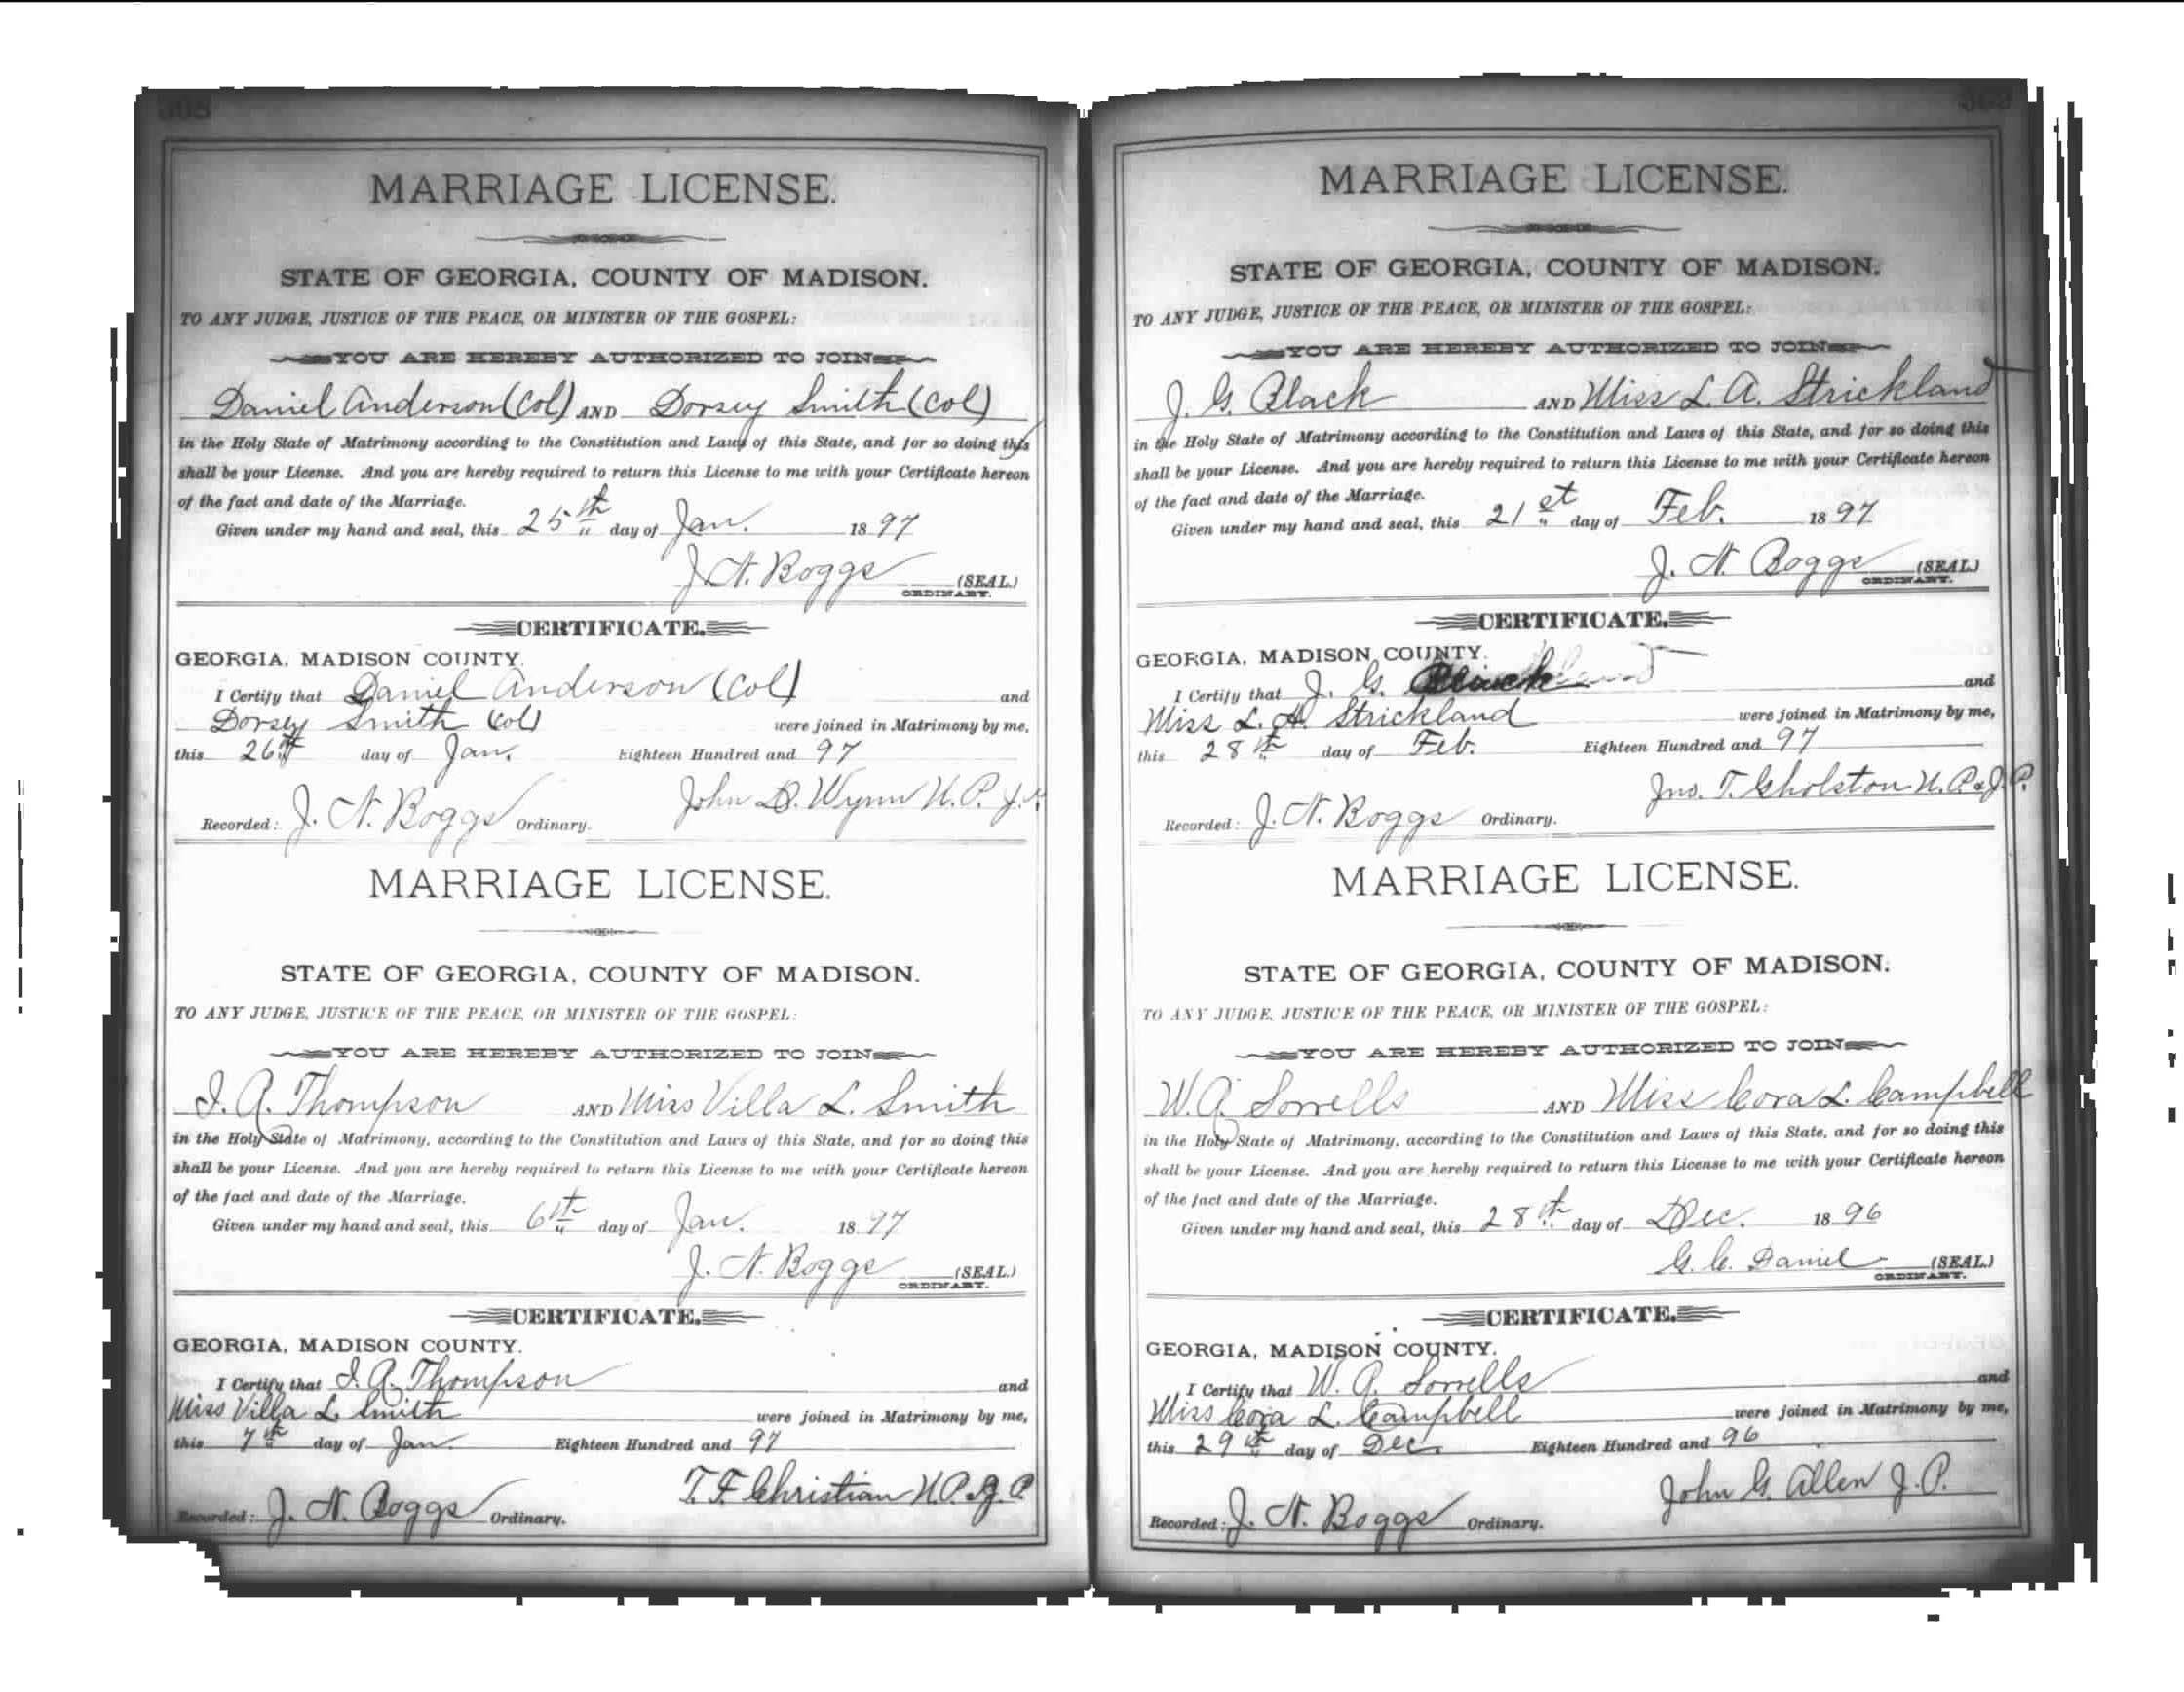 308
MARRIAGE LICENSE.
STATE OF GEORGIA, COUNTY OF MADISON.
TO ANY JUDGE, JUSTICE OF THE PEACE, OR MINISTER OF THE GOSPEL:
YOU ARE HEREBY AUTHORIZED TO JOIN
Daniel Anderson (Col) AND Dorsey Smith (Col)
in the Holy State of Matrimony according to the Constitution and Laws of this State, and for so doing this
shall be your License. And you are hereby required to return this License to me with your Certificate hereon
of the fact and date of the Marriage.
Given under my hand and seal, this 25th day of Jan. 1897
J. N. Boggs (SEAL.)
ORDINARY.
CERTIFICATE.
GEORGIA, MADISON COUNTY.
I Certify that Daniel Anderson (Col) and
Dorsey Smith (Col) were joined in Matrimony by me,
this 26th day of Jan. Eighteen Hundred and 97
John D. Wynn N. P. J. P.
Recorded: J. N. Boggs Ordinary.
MARRIAGE LICENSE.
STATE OF GEORGIA, COUNTY OF MADISON.
TO ANY JUDGE, JUSTICE OF THE PEACE, OR MINISTER OF THE GOSPEL:
YOU ARE HEREBY AUTHORIZED TO JOIN
I. A. Thompson AND Miss Villa L. Smith
in the Holy State of Matrimony, according to the Constitution and Laws of this State, and for so doing this
shall be your License. And you are hereby required to return this License to me with your Certificate hereon
of the fact and date of the Marriage.
Given under my hand and seal, this 6th day of Jan. 1897
J. N. Boggs (SEAL.)
ORDINARY.
CERTIFICATE.
GEORGIA, MADISON COUNTY.
I Certify that I. A. Thompson and
Miss Villa L. Smith were joined in Matrimony by me,
this 7th day of Jan. Eighteen Hundred and 97
T. F. Christian N. P. & J. P.
Recorded: J. N. Boggs Ordinary.
309
MARRIAGE LICENSE.
STATE OF GEORGIA, COUNTY OF MADISON.
TO ANY JUDGE, JUSTICE OF THE PEACE, OR MINISTER OF THE GOSPEL:
YOU ARE HEREBY AUTHORIZED TO JOIN
J. G. Black AND Miss L. A. Strickland
in the Holy State of Matrimony according to the Constitution and Laws of this State, and for so doing this
shall be your License. And you are hereby required to return this License to me with your Certificate hereon
of the fact and date of the Marriage.
Given under my hand and seal, this 21st day of Feb. 1897
J. N. Boggs (SEAL.)
ORDINARY.
CERTIFICATE.
GEORGIA, MADISON COUNTY.
I Certify that J. G. Black and
Miss L. A. Strickland were joined in Matrimony by me,
this 28th day of Feb. Eighteen Hundred and 97
Jno. T. Gholston N. P. & J. P.
Recorded: J. N. Boggs Ordinary.
MARRIAGE LICENSE.
STATE OF GEORGIA, COUNTY OF MADISON.
TO ANY JUDGE, JUSTICE OF THE PEACE, OR MINISTER OF THE GOSPEL:
YOU ARE HEREBY AUTHORIZED TO JOIN
W. A. Sorrells AND Miss Cora L. Campbell
in the Holy State of Matrimony, according to the Constitution and Laws of this State, and for so doing this
shall be your License. And you are hereby required to return this License to me with your Certificate hereon
of the fact and date of the Marriage.
Given under my hand and seal, this 28th day of Dec. 1896
G. C. Daniel (SEAL.)
ORDINARY.
CERTIFICATE.
GEORGIA, MADISON COUNTY.
I Certify that W. A. Sorrells and
Miss Cora L. Campbell were joined in Matrimony by me,
this 29th day of Dec. Eighteen Hundred and 96
John G. Allen J. P.
Recorded: J. N. Boggs Ordinary.